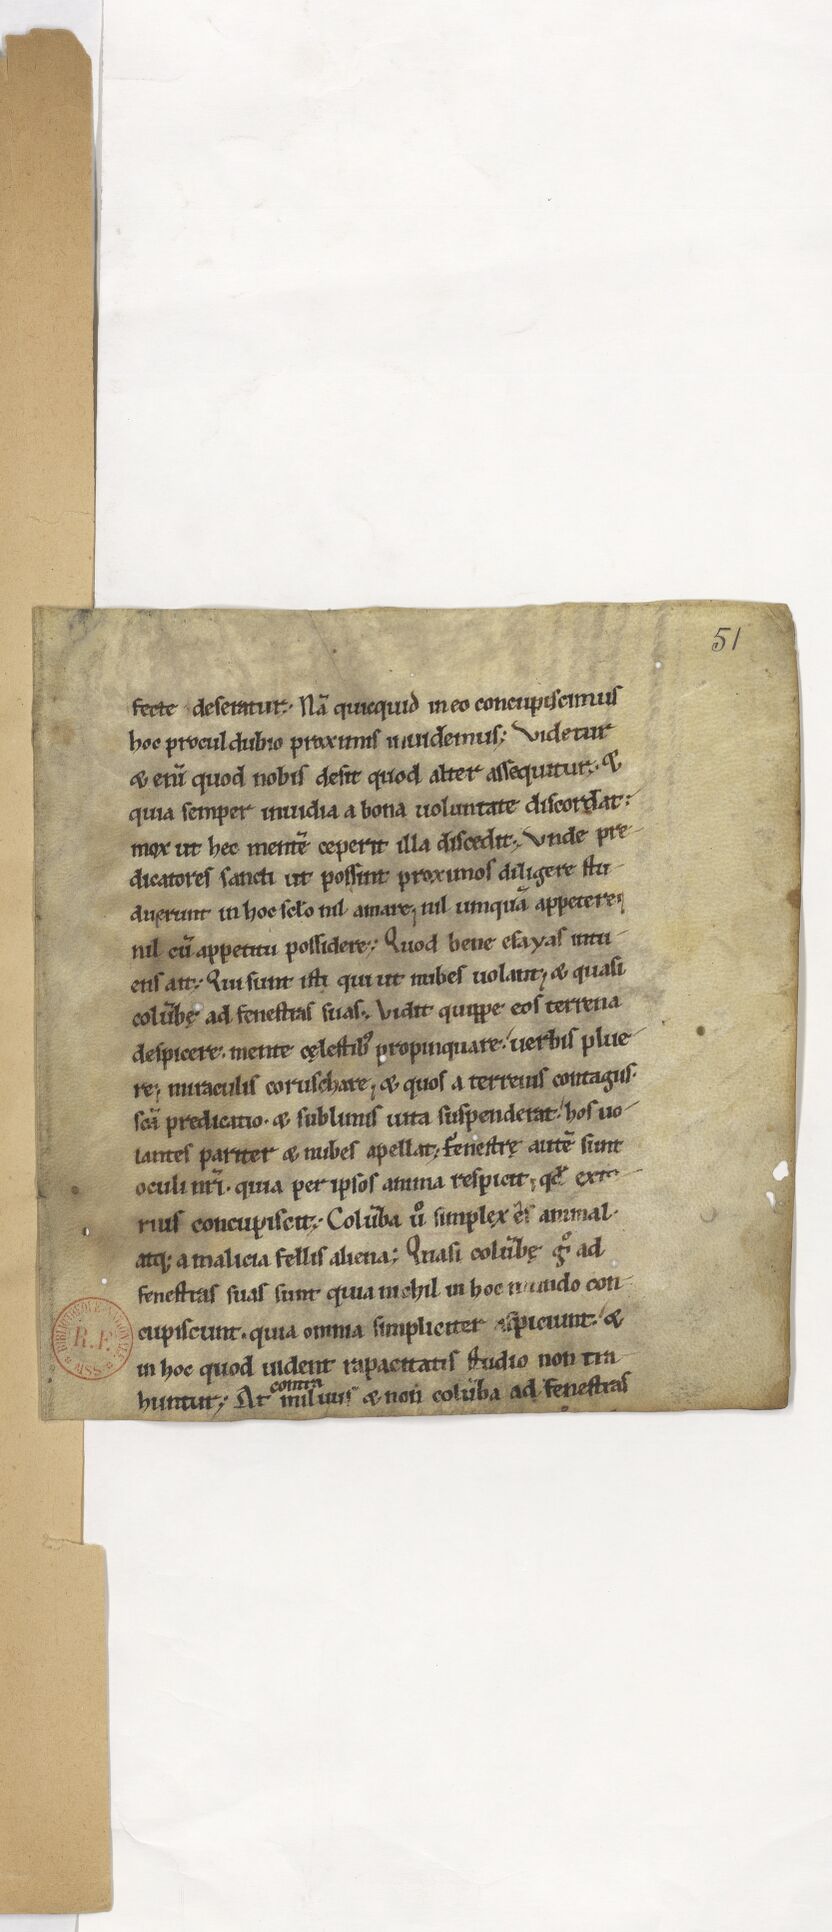 51
fecte deseratur. Nā quicquid in eo concupiscimus
hoc procul dubio proximis inuidemus; Videtur
& eni̅ quod nobis desit quod alter assequitur. &
quia semper inuidia a bona uoluntate discordat:
mox ut hec mentē ceperit illa discedit. Vnde pre-
dicatores sancti ut possint proximos diligere stu-
duerunt in hoc sclo̅ nil amare, nil umquā appetere,
nil cū appetitu possidere; Quod bene esayas intu-
ens ait; Qui sunt isti qui ut nubes uolant, & quasi
colūbę ad fenestras suas. Vidit quippe eos terrena
despicere. mente cęlestib; propinquare. uerbis plue-
re, miraculis coruschare, & quos a terrenis contagiis.
scā predicatio. & sublimis uita suspenderat. hos uo-
lantes pariter & nubes apellat; Fenestrę autē sunt
oculi nr̄i. quia per ipsos anima respicit, qd̄ exte-
rius concupiscit; Colūba uº simplex ēs animal.
atq; a malicia fellis aliena; Quasi colūbę gº ad
fenestras suas sunt quia nichil in hoc mundo con-
cupiscunt. quia omnia simpliciter aspiciunt. &
in hoc quod uident rapacitatis studio non tra-
contra
huntur; At miluus & non colūba ad fenestras
BIBLIOTHEQUE NATIONALE
R.F.
MSS